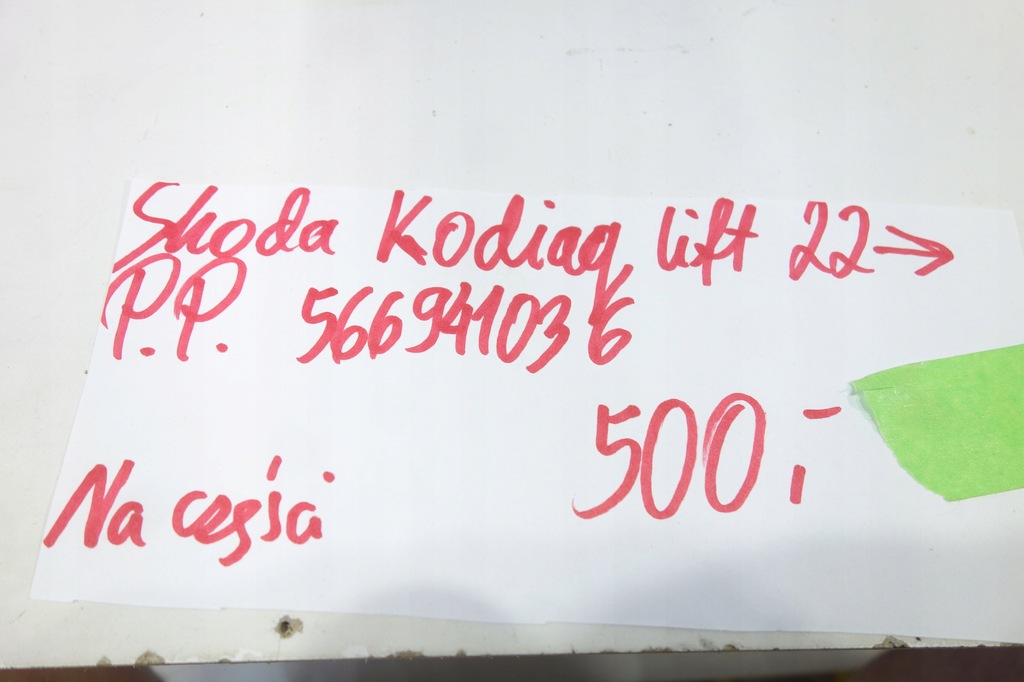 Skoda Kodiaq lift 22→
P.P. 566941036
500,-
Na części